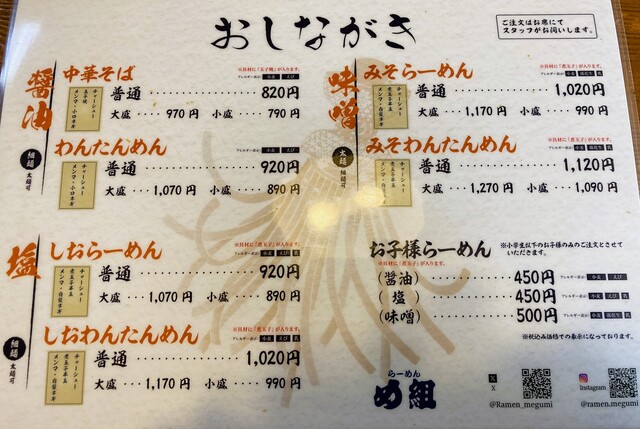 おしながき
ご注文はお席にて
スタッフがお伺いします。
醤油
細麺
太麺可
中華そば
※具材に「玉子焼」が入ります。
アレルギー表示 小麦 えび
チャーシュー
玉子焼
メンマ・小口ネギ
普通 820円
大盛 970円 小盛 790円
わんたんめん
アレルギー表示 小麦 えび 乳
チャーシュー
メンマ・小口ネギ
普通 920円
大盛 1,070円 小盛 890円
塩
細麺
太麺可
しおらーめん
※具材に「煮玉子」が入ります。
アレルギー表示 小麦 えび 乳
チャーシュー
煮玉子半玉
メンマ・白髪ネギ
普通 920円
大盛 1,070円 小盛 890円
しおわんたんめん
※具材に「煮玉子」が入ります。
アレルギー表示 小麦 えび 乳
チャーシュー
煮玉子半玉
メンマ・白髪ネギ
普通 1,020円
大盛 1,170円 小盛 990円
味噌
太麺
細麺可
みそらーめん
※具材に「煮玉子」が入ります。
アレルギー表示 小麦 落花生 乳
チャーシュー
煮玉子半玉
メンマ・白髪ネギ
普通 1,020円
大盛 1,170円 小盛 990円
みそわんたんめん
※具材に「煮玉子」が入ります。
アレルギー表示 小麦 落花生 乳
チャーシュー
煮玉子半玉
メンマ・白髪ネギ
普通 1,120円
大盛 1,270円 小盛 1,090円
お子様らーめん
※小学生以下のお子様のみのご注文とさせて
いただきます。
※具材に「煮玉子」が入ります。
(醤油) 450円 アレルギー表示 小麦 えび 乳
(塩) 450円 アレルギー表示 小麦 えび 乳
(味噌) 500円 アレルギー表示 小麦 落花生 乳
※税込み価格での表示になっております。
らーめん
め組
X
@Ramen_megumi
Instagram
@ramen.megumi